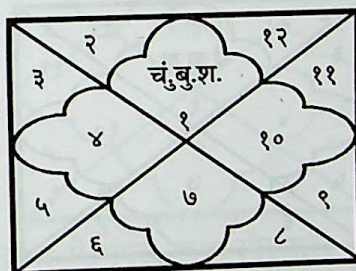 २ १२
३ चं.बु.श. ११
१
४ १०
५ ७ ९
६ ८